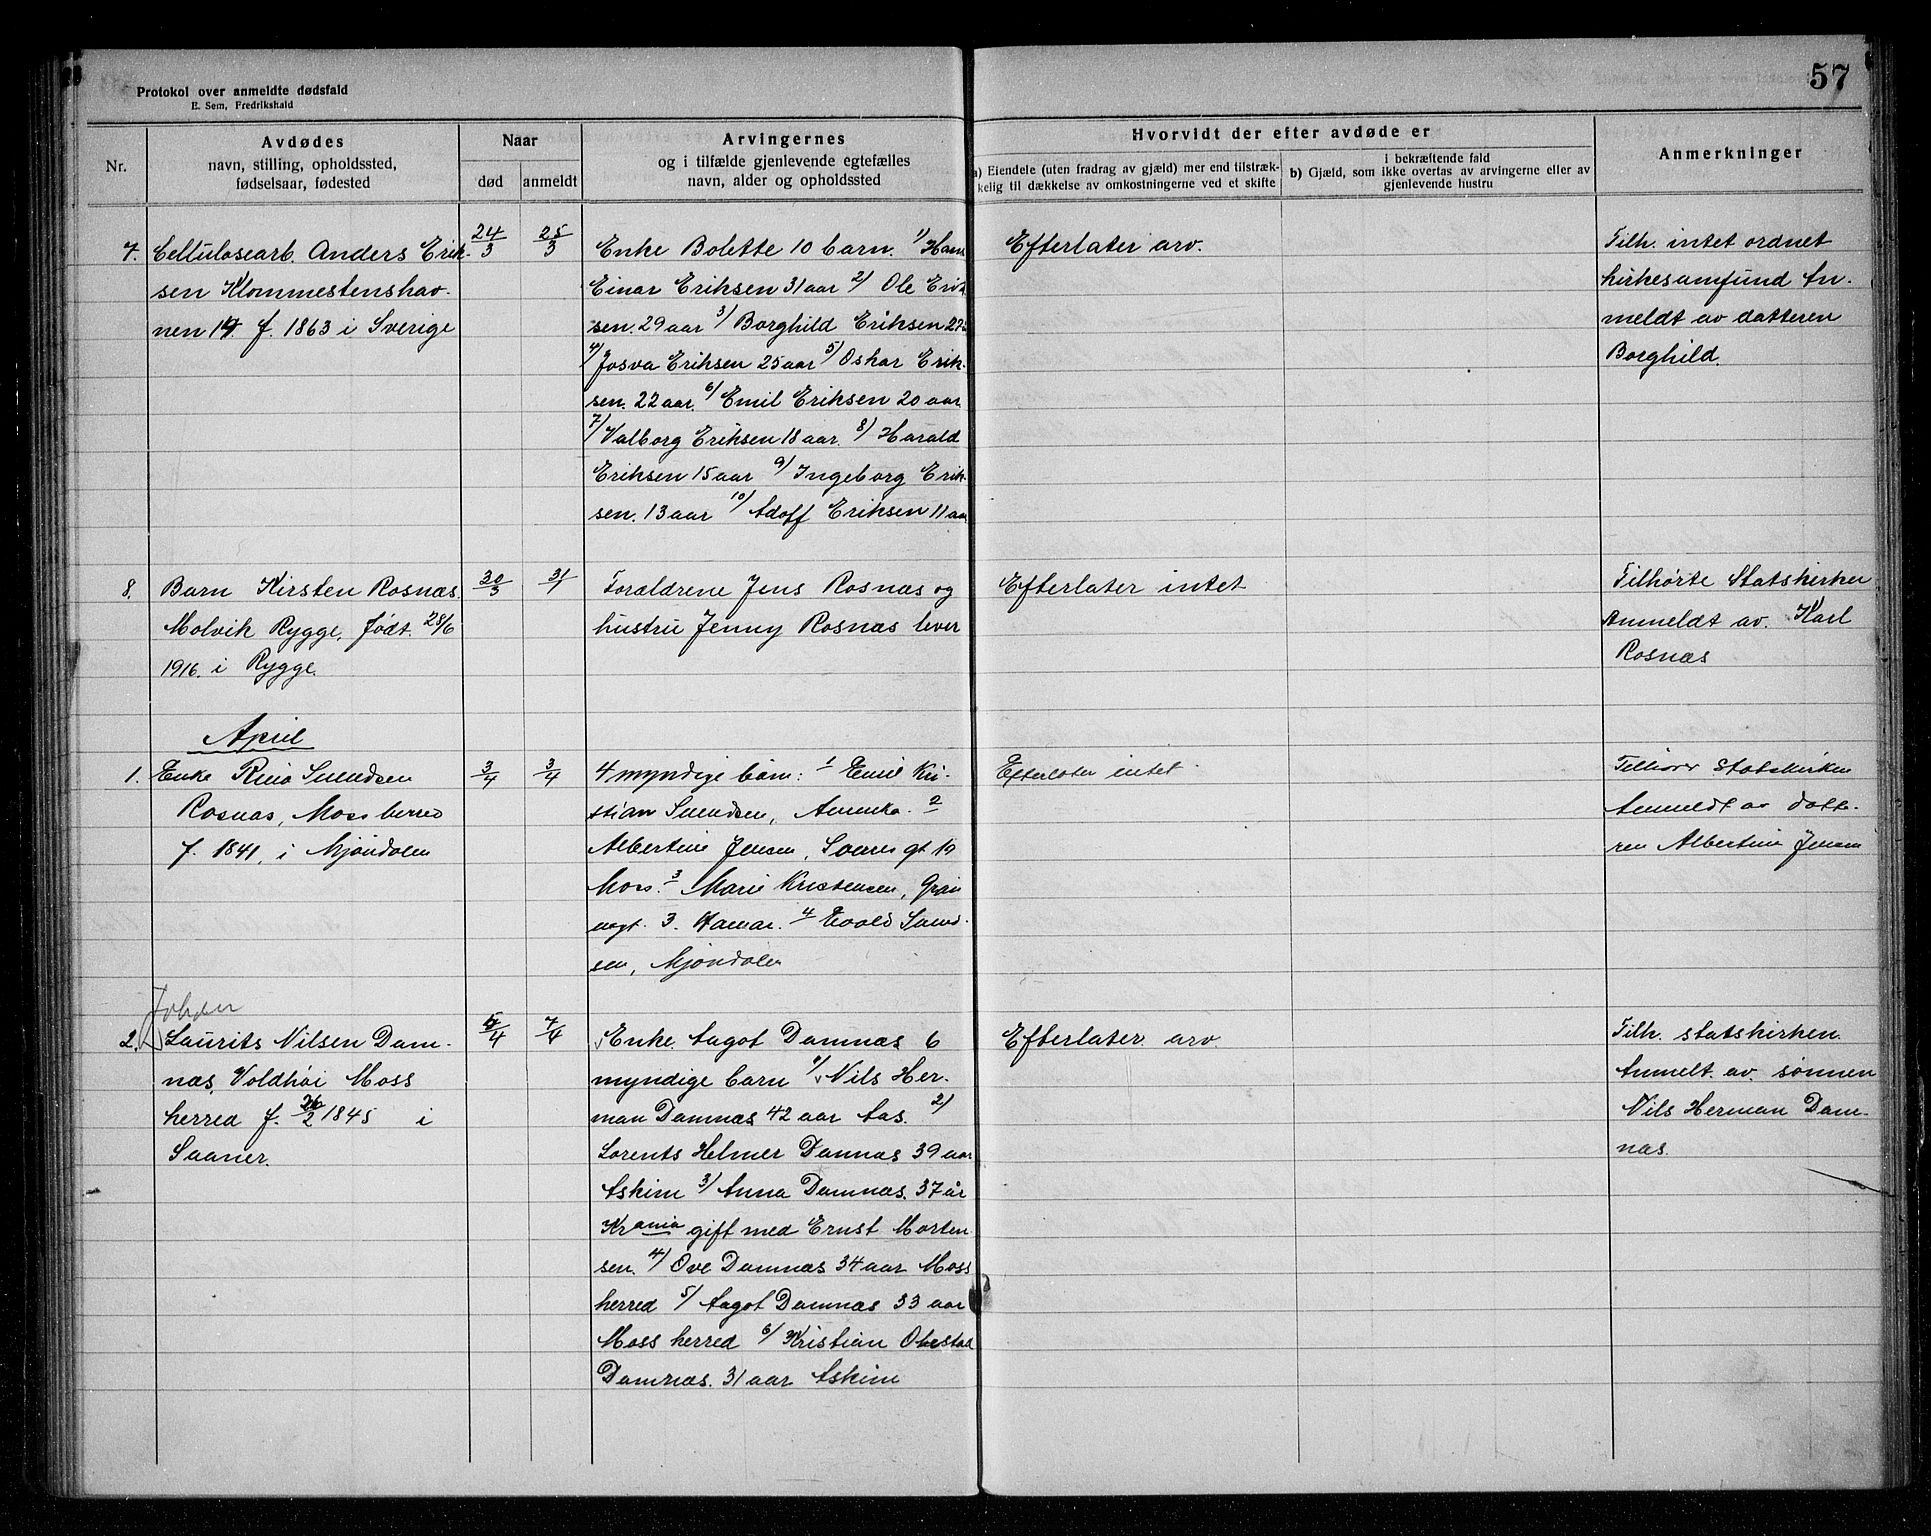 57
Protokol over anmeldte dødsfald
E. Sem, Fredrikshald
Nr.
Avdødes
navn, stilling, opholdssted,
fødselsaar, fødested
Naar
død
anmeldt
Arvingernes
og i tilfælde gjenlevende egtefælles
navn, alder og opholdssted
Hvorvidt der efter avdøde er
a) Eiendele (uten fradrag av gjæld) mer end tilstræk-
kelig til dækkelse av omkostningerne ved et skifte
i bekræftende fald
b) Gjæld, som ikke overtas av arvingerne eller av
gjenlevende hustru
Anmerkninger
7.
Cellulosearb. Anders Erik-
sen Klommestenshav-
nen 14. f. 1863 i Sverige
24/3
25/3
Enke Bolette 10 barn. 1/ Hans
Einar Eriksen 31 aar 2/ Ole Erik
sen. 29 aar 3/ Borghild Eriksen
4/ Josva Eriksen 25 aar 5/ Oskar Erik-
sen. 22 aar. 6/ Emil Eriksen 20 aar
7/ Valborg Eriksen 18 aar. 8/ Harald
Eriksen 15 aar 9/ Ingeborg Erik-
sen. 13 aar 10/ Adolf Eriksen 11 aar
Efterlater arv.
Tilh. intet ordnet
kirkesamfund An-
meldt av datteren
Borghild.
8.
Barn Kirsten Rosnæs.
Molvik Rygge, født. 28/6
1916. i Rygge.
30/3
31/
Forældrene Jens Rosnæs og
hustru Jenny Rosnæs lever
Efterlater intet
Tilhørte Statskirken
Anmeldt av. Karl
Rosnæs
April
1.
Enke Smedsen
Rosnæs, Moss herred
f. 1841, i Mjøndalen
3/4
3/4
4 myndige barn: 1 Emil Kri-
stian Smedsen, Amerika. 2
Albertine Jensen, gt 19
Moss. 3 Marie Kristensen,
3. Hamar. 4 Evald Smed-
sen, Mjøndalen
Efterlater intet
Tilhører Statskirken
Anmeldt av datte-
ren Albertine Jensen
Johan
2.
Laurits Nilsen Dam-
næs, Voldhøi Moss
herred f. 26/2 1845 i
Saaner.
5/4
7/4
Enke. Aagot Damnæs 6
myndige barn 1/ Nils Her-
man Damnæs 42 aar Aas. 2/
Lorents Helmer Damnæs 39 aar
Askim 3/ Anna Damnæs. 37 år
Krania gift med Ernst Morten-
sen. 4/ Ove Damnæs 34 aar Moss
herred 5/ Aagot Damnæs 33 aar
Moss herred 6/ Kristian
Damnæs. 31 aar Askim
Efterlater arv.
Tilh. statskirken.
Anmelt. av. sønnen
Nils Herman Dam-
næs.